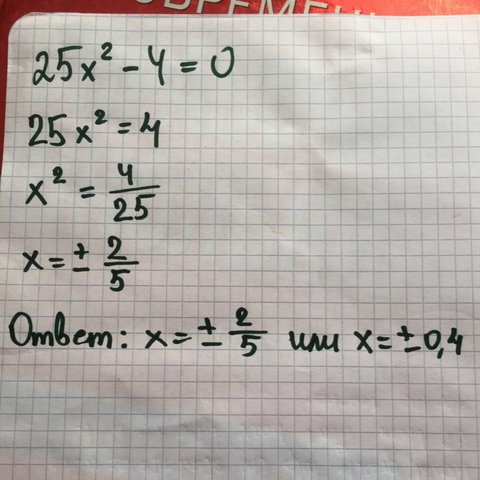 СОВРЕМЕН
25x² - 4 = 0
25x² = 4
x² = 4/25
x = ± 2/5
Ответ: x = ± 2/5 или x = ± 0,4